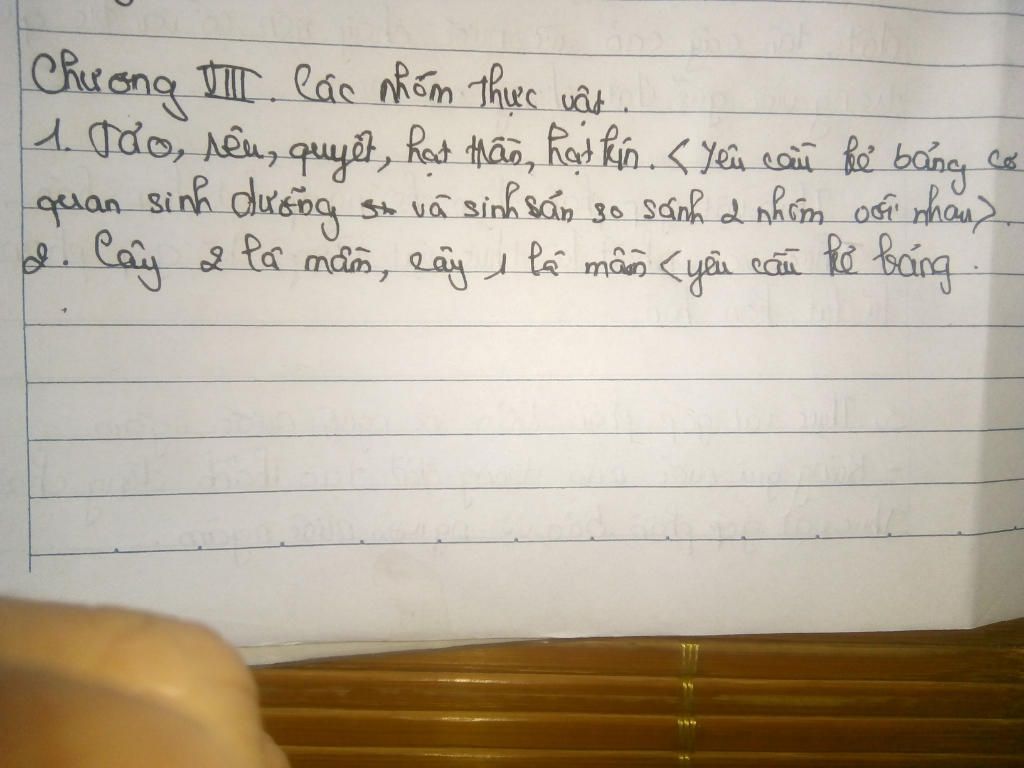 Chương VIII. Các nhóm thực vật.
1. Tảo, rêu, quyết, hạt trần, hạt kín. < Yêu cầu kẻ bảng cơ
quan sinh dưỡng và sinh sản so sánh 2 nhóm với nhau>.
2. Cây 2 lá mầm, cây 1 lá mầm < yêu cầu kẻ bảng.